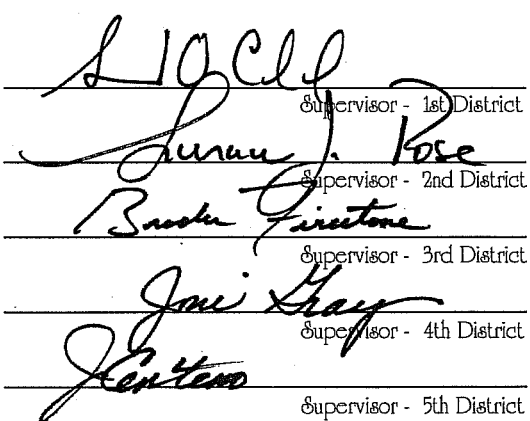 Supervisor - 1st District
Susan J. Rose
Supervisor - 2nd District
Brooks Firestone
Supervisor - 3rd District
Joni Gray
Supervisor - 4th District
J Centeno
Supervisor - 5th District